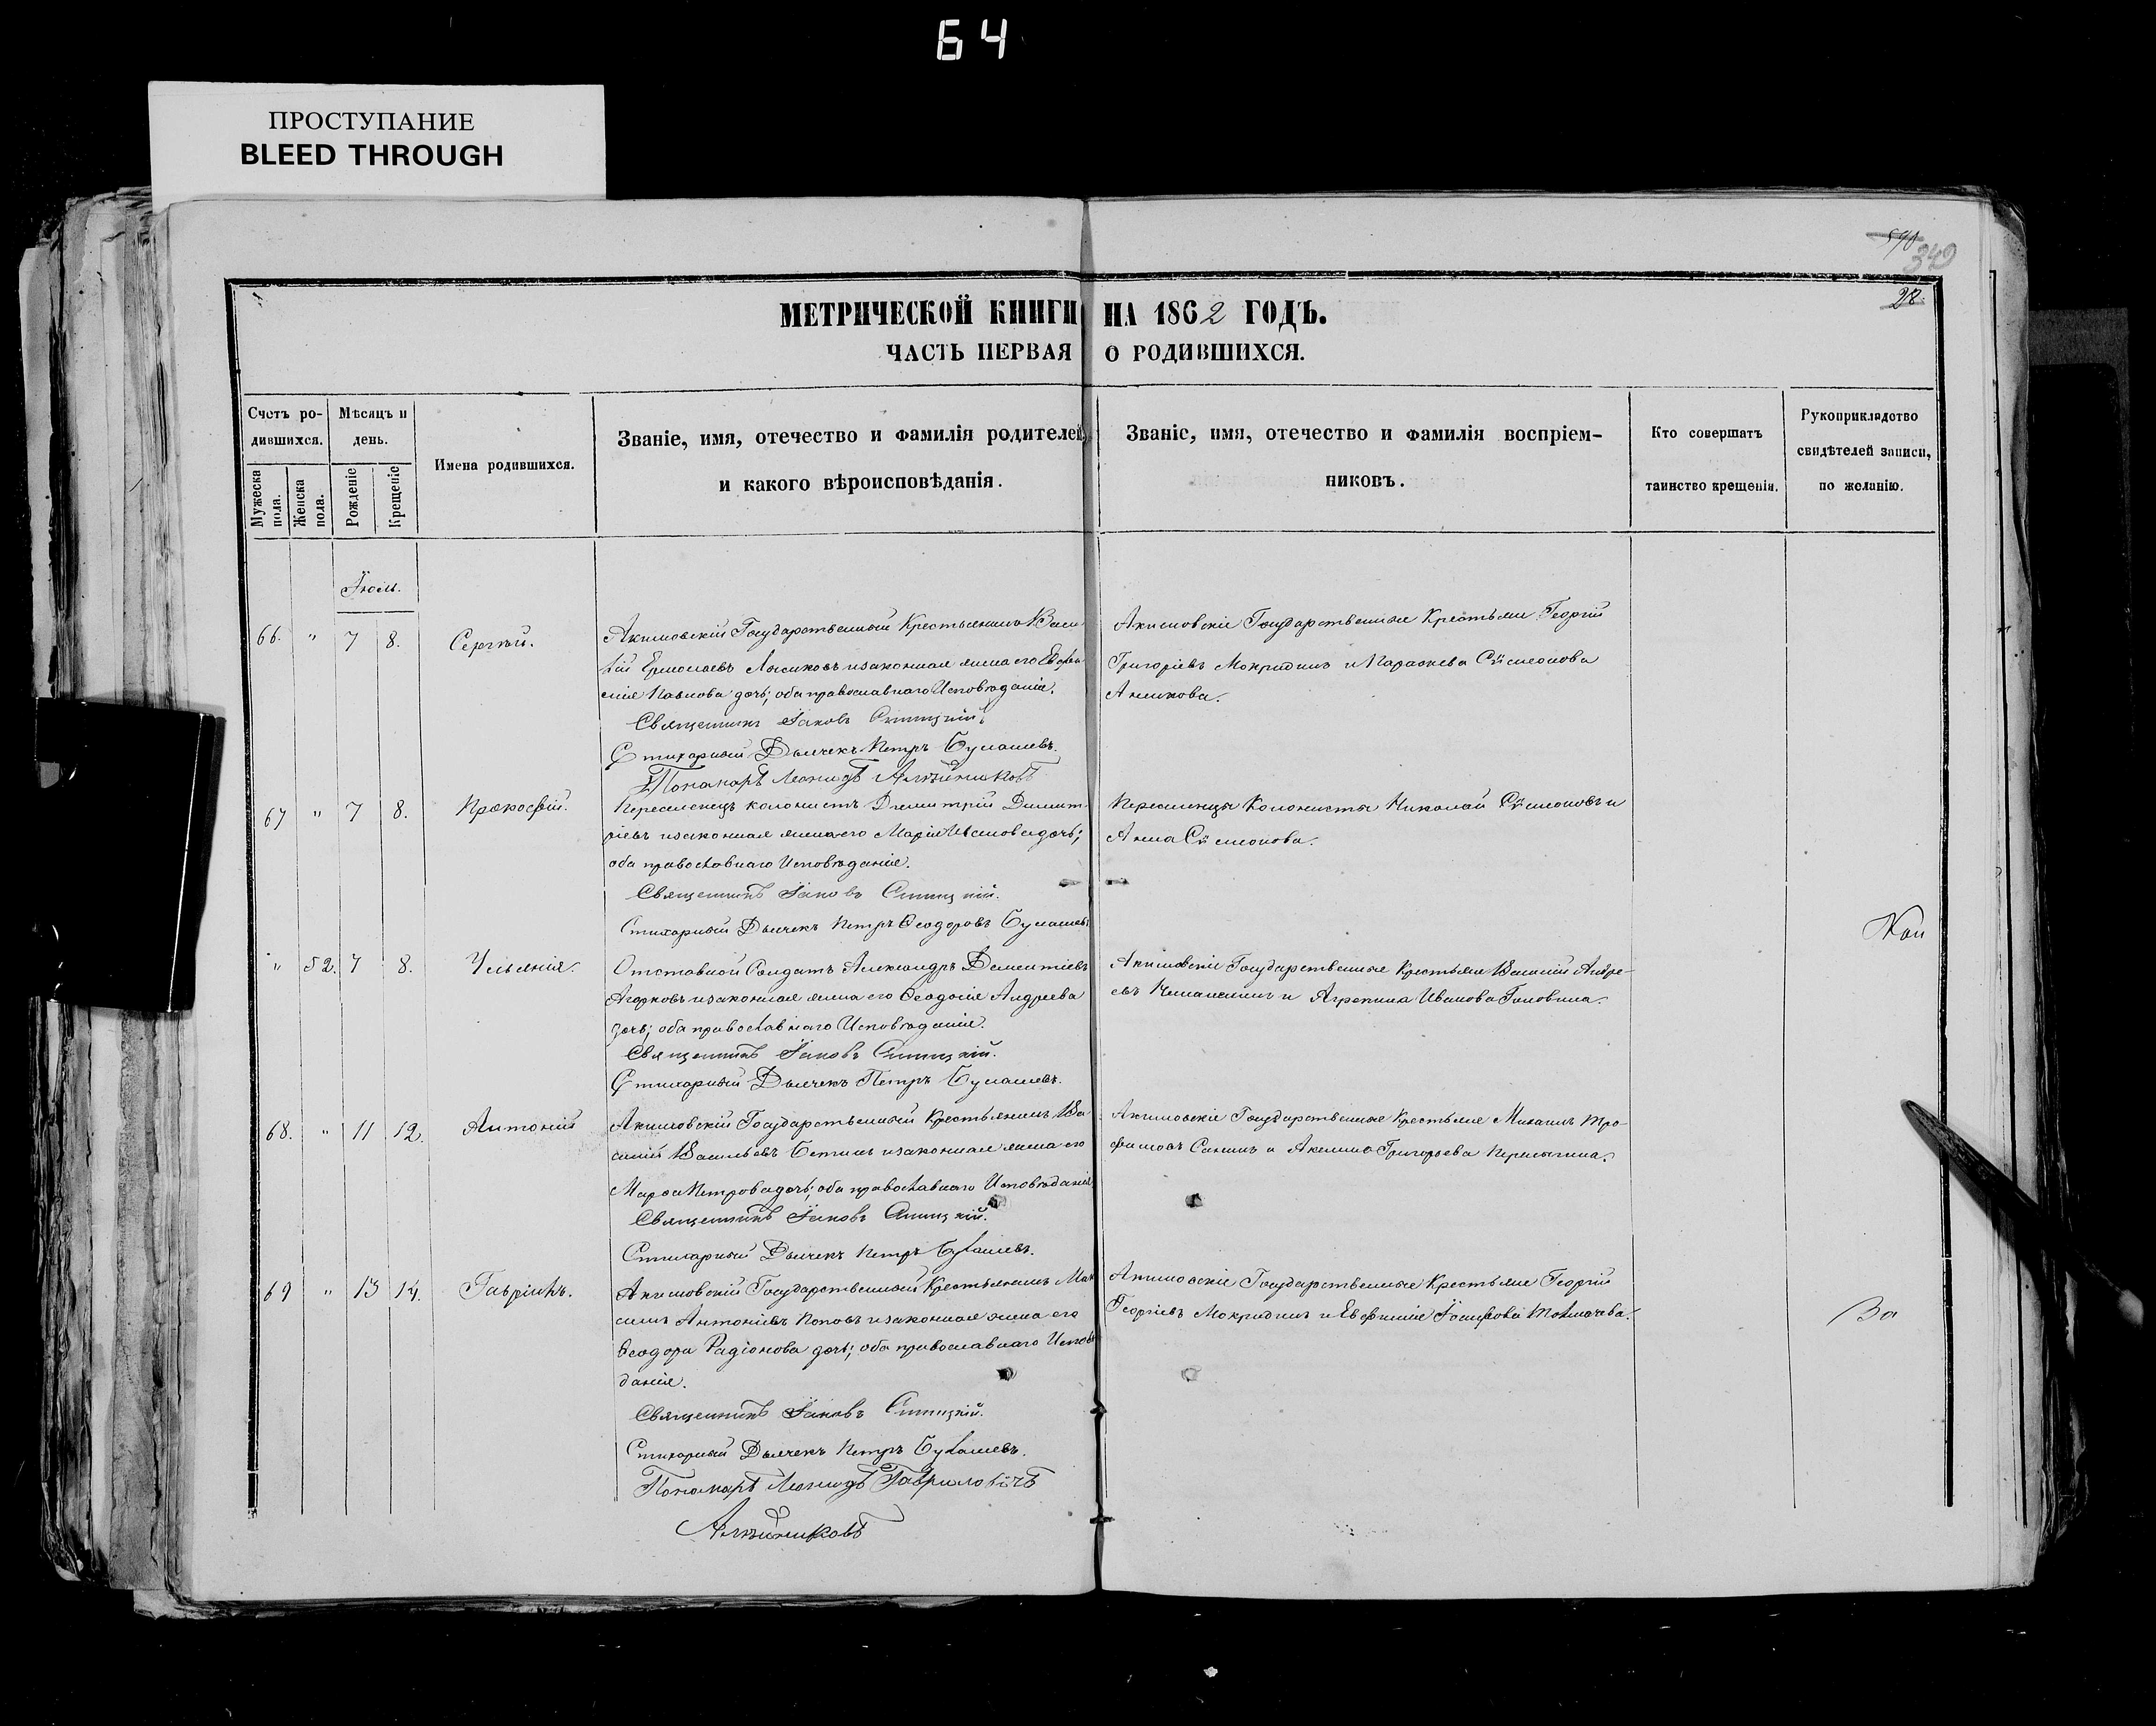 64
ПРОСТУПАНИЕ
BLEED THROUGH
340
28.
МЕТРИЧЕСКОЙ КНИГИ НА 1862 ГОДЪ.
ЧАСТЬ ПЕРВАЯ О РОДИВШИХСЯ.
Счетъ родившихся.
Мужеска пола.
Женска пола.
Мѣсяцъ и день.
Рожденіе
Крещеніе
Имена родившихся.
Званіе, имя, отечество и фамилія родителей,
и какого вѣроисповѣданія.
Званіе, имя, отечество и фамилія воспріем-
никовъ.
Кто совершалъ
таинство крещенія.
Рукоприкладство
свидѣтелей записи,
по желанію.
Іюль.
66. " 7 8. Сергѣй.
Акимовскій Государственный Крестьянинъ Васи-
лій Ермолаевъ Лысиковъ и законная жена его Евфи-
мія Павлова дочь; оба православнаго Исповѣданія.
Священникъ Іаковъ
Стихарный Дьячекъ Петръ Булашевъ.
Пономарь Леонидъ Алѣйниковъ
Акимовскіе Государственные Крестьяне Георгій
Григоріевъ Мокридинъ и Параскева Сѵмеонова
Аникова.
67 " 7 8. Прокофій.
Переселенецъ колонистъ Димитрій Димит-
ріевъ и законная жена его Марія Иванова дочь;
оба православнаго Исповѣданія.
Священникъ Іаковъ
Стихарный Дьячекъ Петръ Ѳеодоровъ Булашевъ
Переселенцы Колонисты Николай Сѵмеоновъ и
Анна Сѵмеонова.
" 52. 7 8. Ульянія.
Отставной Солдатъ Александръ Дементіевъ
Агарковъ и законная жена его Ѳеодосія Андреева
дочь; оба православнаго Исповѣданія.
Священникъ Іаковъ
Стихарный Дьячекъ Петръ Булашевъ.
Акимовскіе Государственные Крестьяне Василій Андре-
евъ и Агрепина Иванова Головина.
68. " 11 12. Антоній
Акимовскій Государственный Крестьянинъ Ва-
силій Васильевъ и законная жена его
Марфа Петрова дочь; оба православнаго Исповѣданія
Священникъ Іаковъ
Стихарный Дьячекъ Петръ Булашевъ.
Акимовскіе Государственные Крестьяне Михаилъ Тро-
фимовъ Санинъ и Акелина Григорьева Перелыгина.
69 " 13 14. Гавріилъ.
Акимовскій Государственный Крестьянинъ Мак-
симъ Антоніевъ Поповъ и законная жена его
Ѳеодора Радіонова дочь; оба православнаго Исповѣ-
данія.
Священникъ Іаковъ
Стихарный Дьячекъ Петръ Булашевъ.
Пономарь Леонидъ Гавриловичъ
Алѣйниковъ
Акимовскіе Государственные Крестьяне Георгій
Георгіевъ Мокридинъ и Евфимія Іосифова Толмачева.